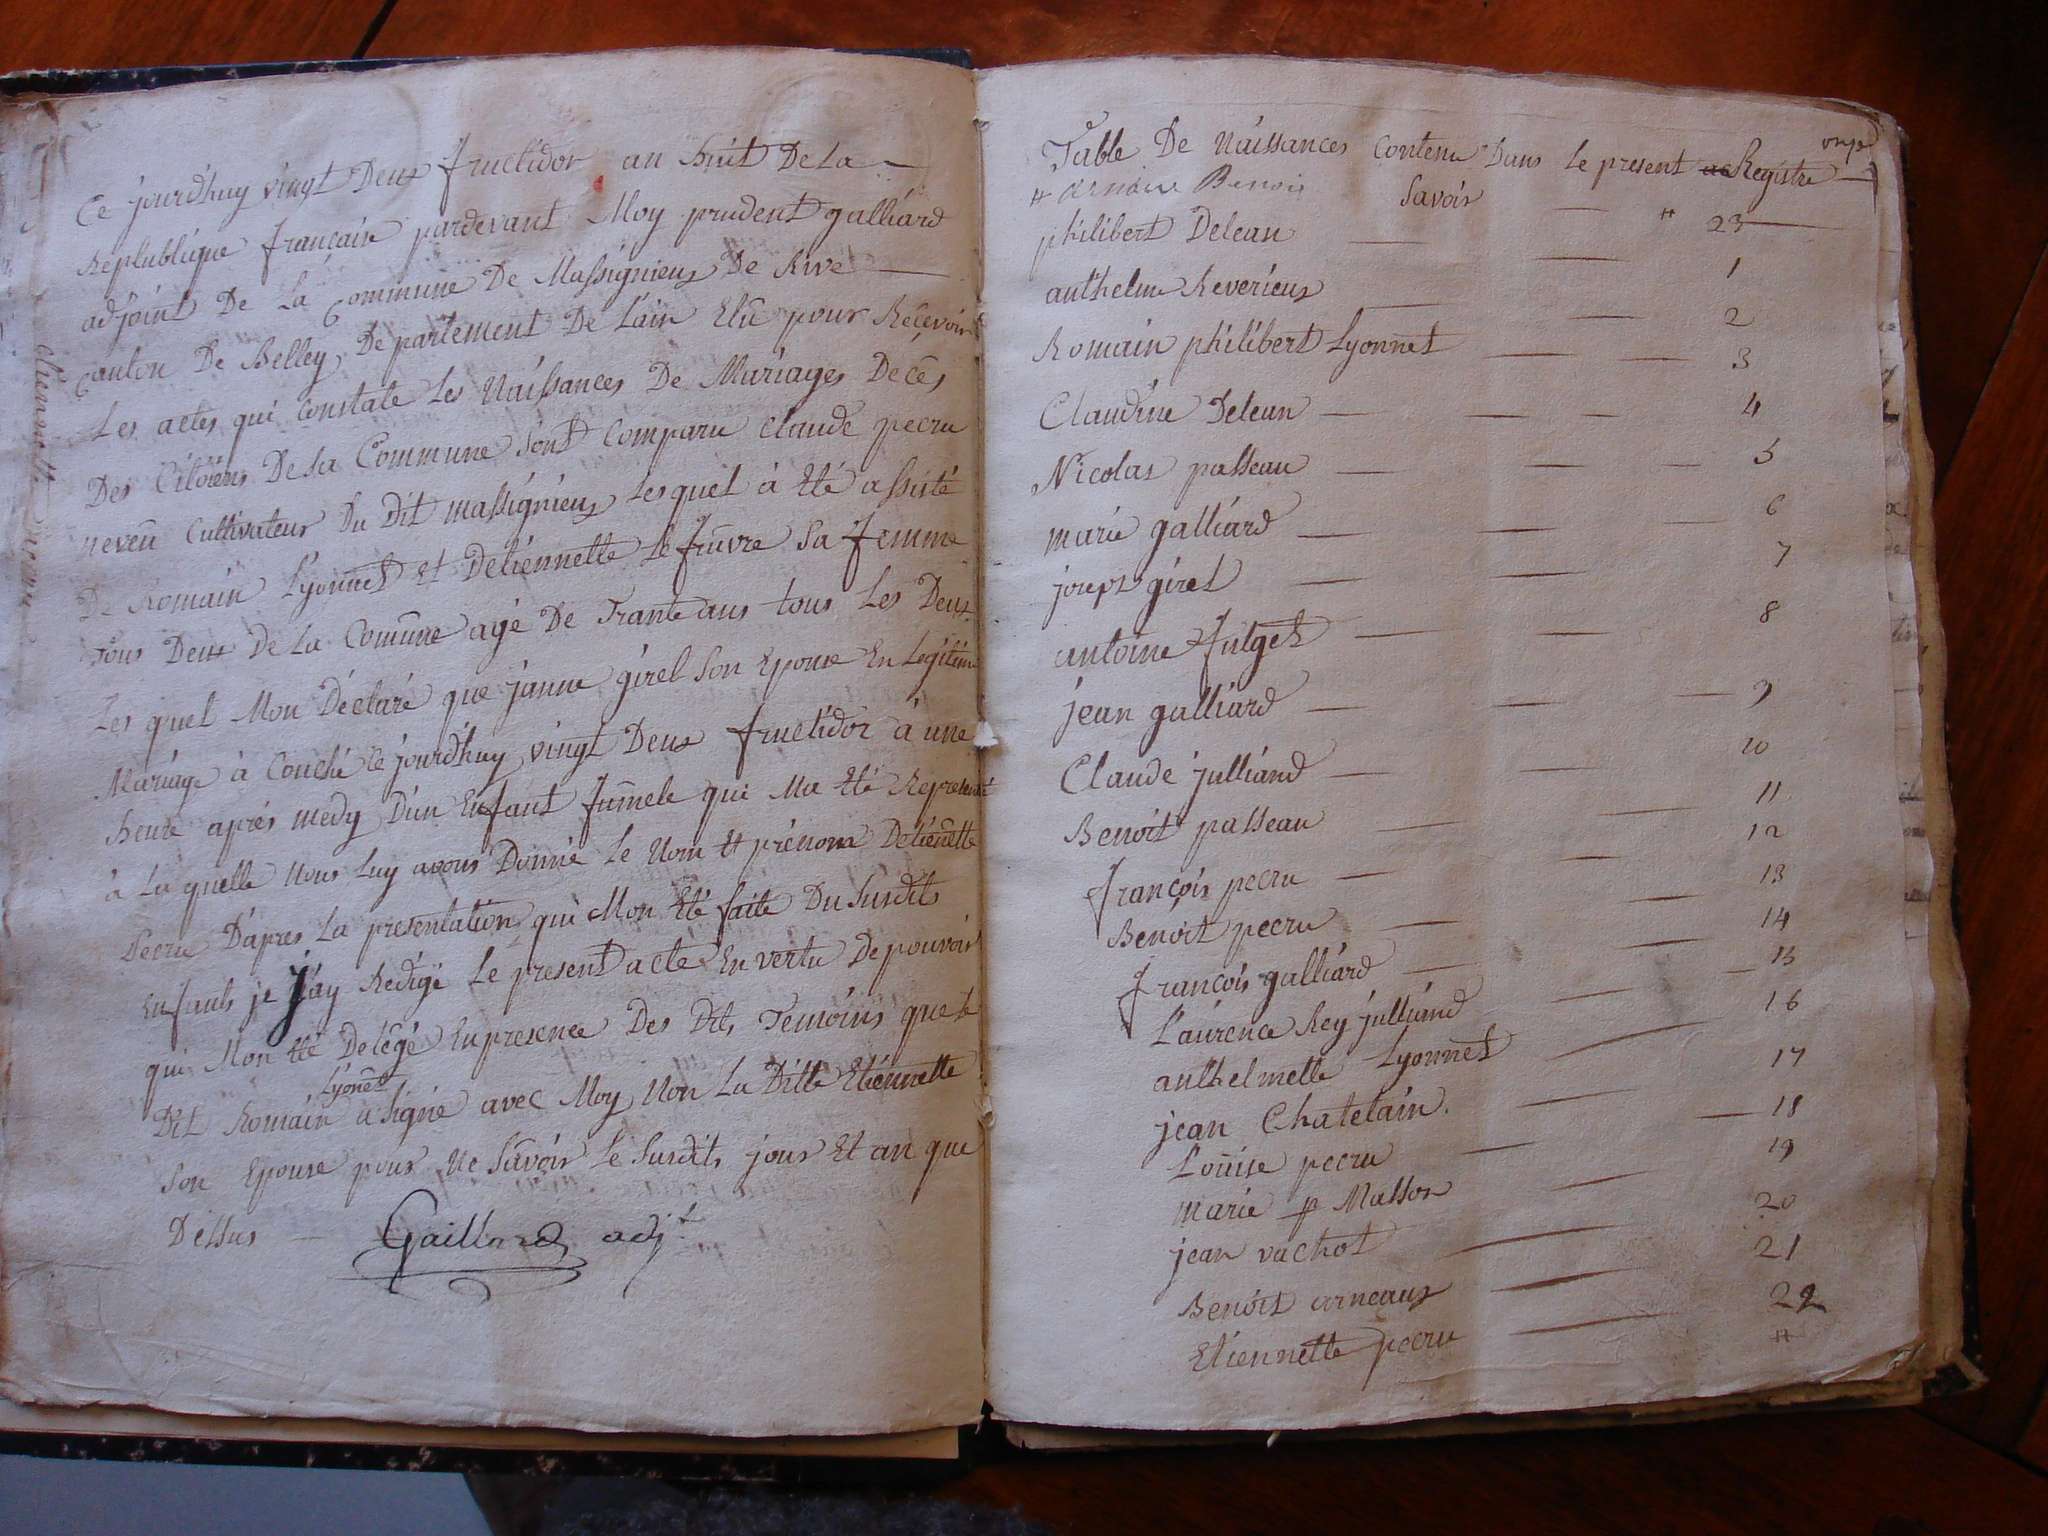 Ce jourdhuy vingt Deux fructidor an huit De La
Replublique francaise pardevant Moy prudent galliard
adjoint De La Commune De Massignieux De Rive
Canton De Belley, Departement De Lain Elu pour Recevoir
Les actes qui constate Les Naissances De Mariages Décés
Des Citoiens De la Commune Sont Comparu claude pecru
neveu Cultivateur Du dit massignieux Lesquel à Eté assisté
De Romain Lyonnet et Detiennette Lefeuvre Sa femme
tous Deux De La Comune agé De Trante ans tous Les Deux
Les quel Mon Déclaré que janne girel Son Epouse En Legitime
Mariage à Couché Ce jourdhuy vingt Deux fructidor à une
heure aprés medy Dun Enfant fumele qui Ma Eté Representé
à La quelle Nous Luy avons Donné Le Nom Et prénom Detiennette
Pecru Dapres La presentation qui Mon Eté faite Du Susdit
Enfants je Jay Redigé Le present acte En vertu De pouvoir
qui Mon Eté Delegé En presence Des Dits Temoins que Le
Dit Romain Lyonet a Signé avec Moy Non La Ditte Etiennette
Son Epouse pour Ne Savoir Le Susdits jours Et an que
Dessus Gaillard adjt
Etiennette pecru
Table De Naissances Contenu Dans Le present Registre
onze
# Arnaux Benoit Savoir # 23
philibert Delean 1
anthelme Reverieux 2
Romain philibert Lyonnet 3
Claudine Delean 4
Nicolas passeau 5
marie galliard 6
joseph girel 7
antoine fulget 8
jean galliard 9
Claude julliand 10
Benoit passeau 11
françois pecru 12
Benoit pecru 13
françois galliard 14
Laurence Rey julliand 15
anthelmette Lyonnet 16
jean Chatelain 17
Louise pecru 18
marie p Masson 19
jean vachot 20
Benoit arneaux 21
Etiennette pecru 22
#